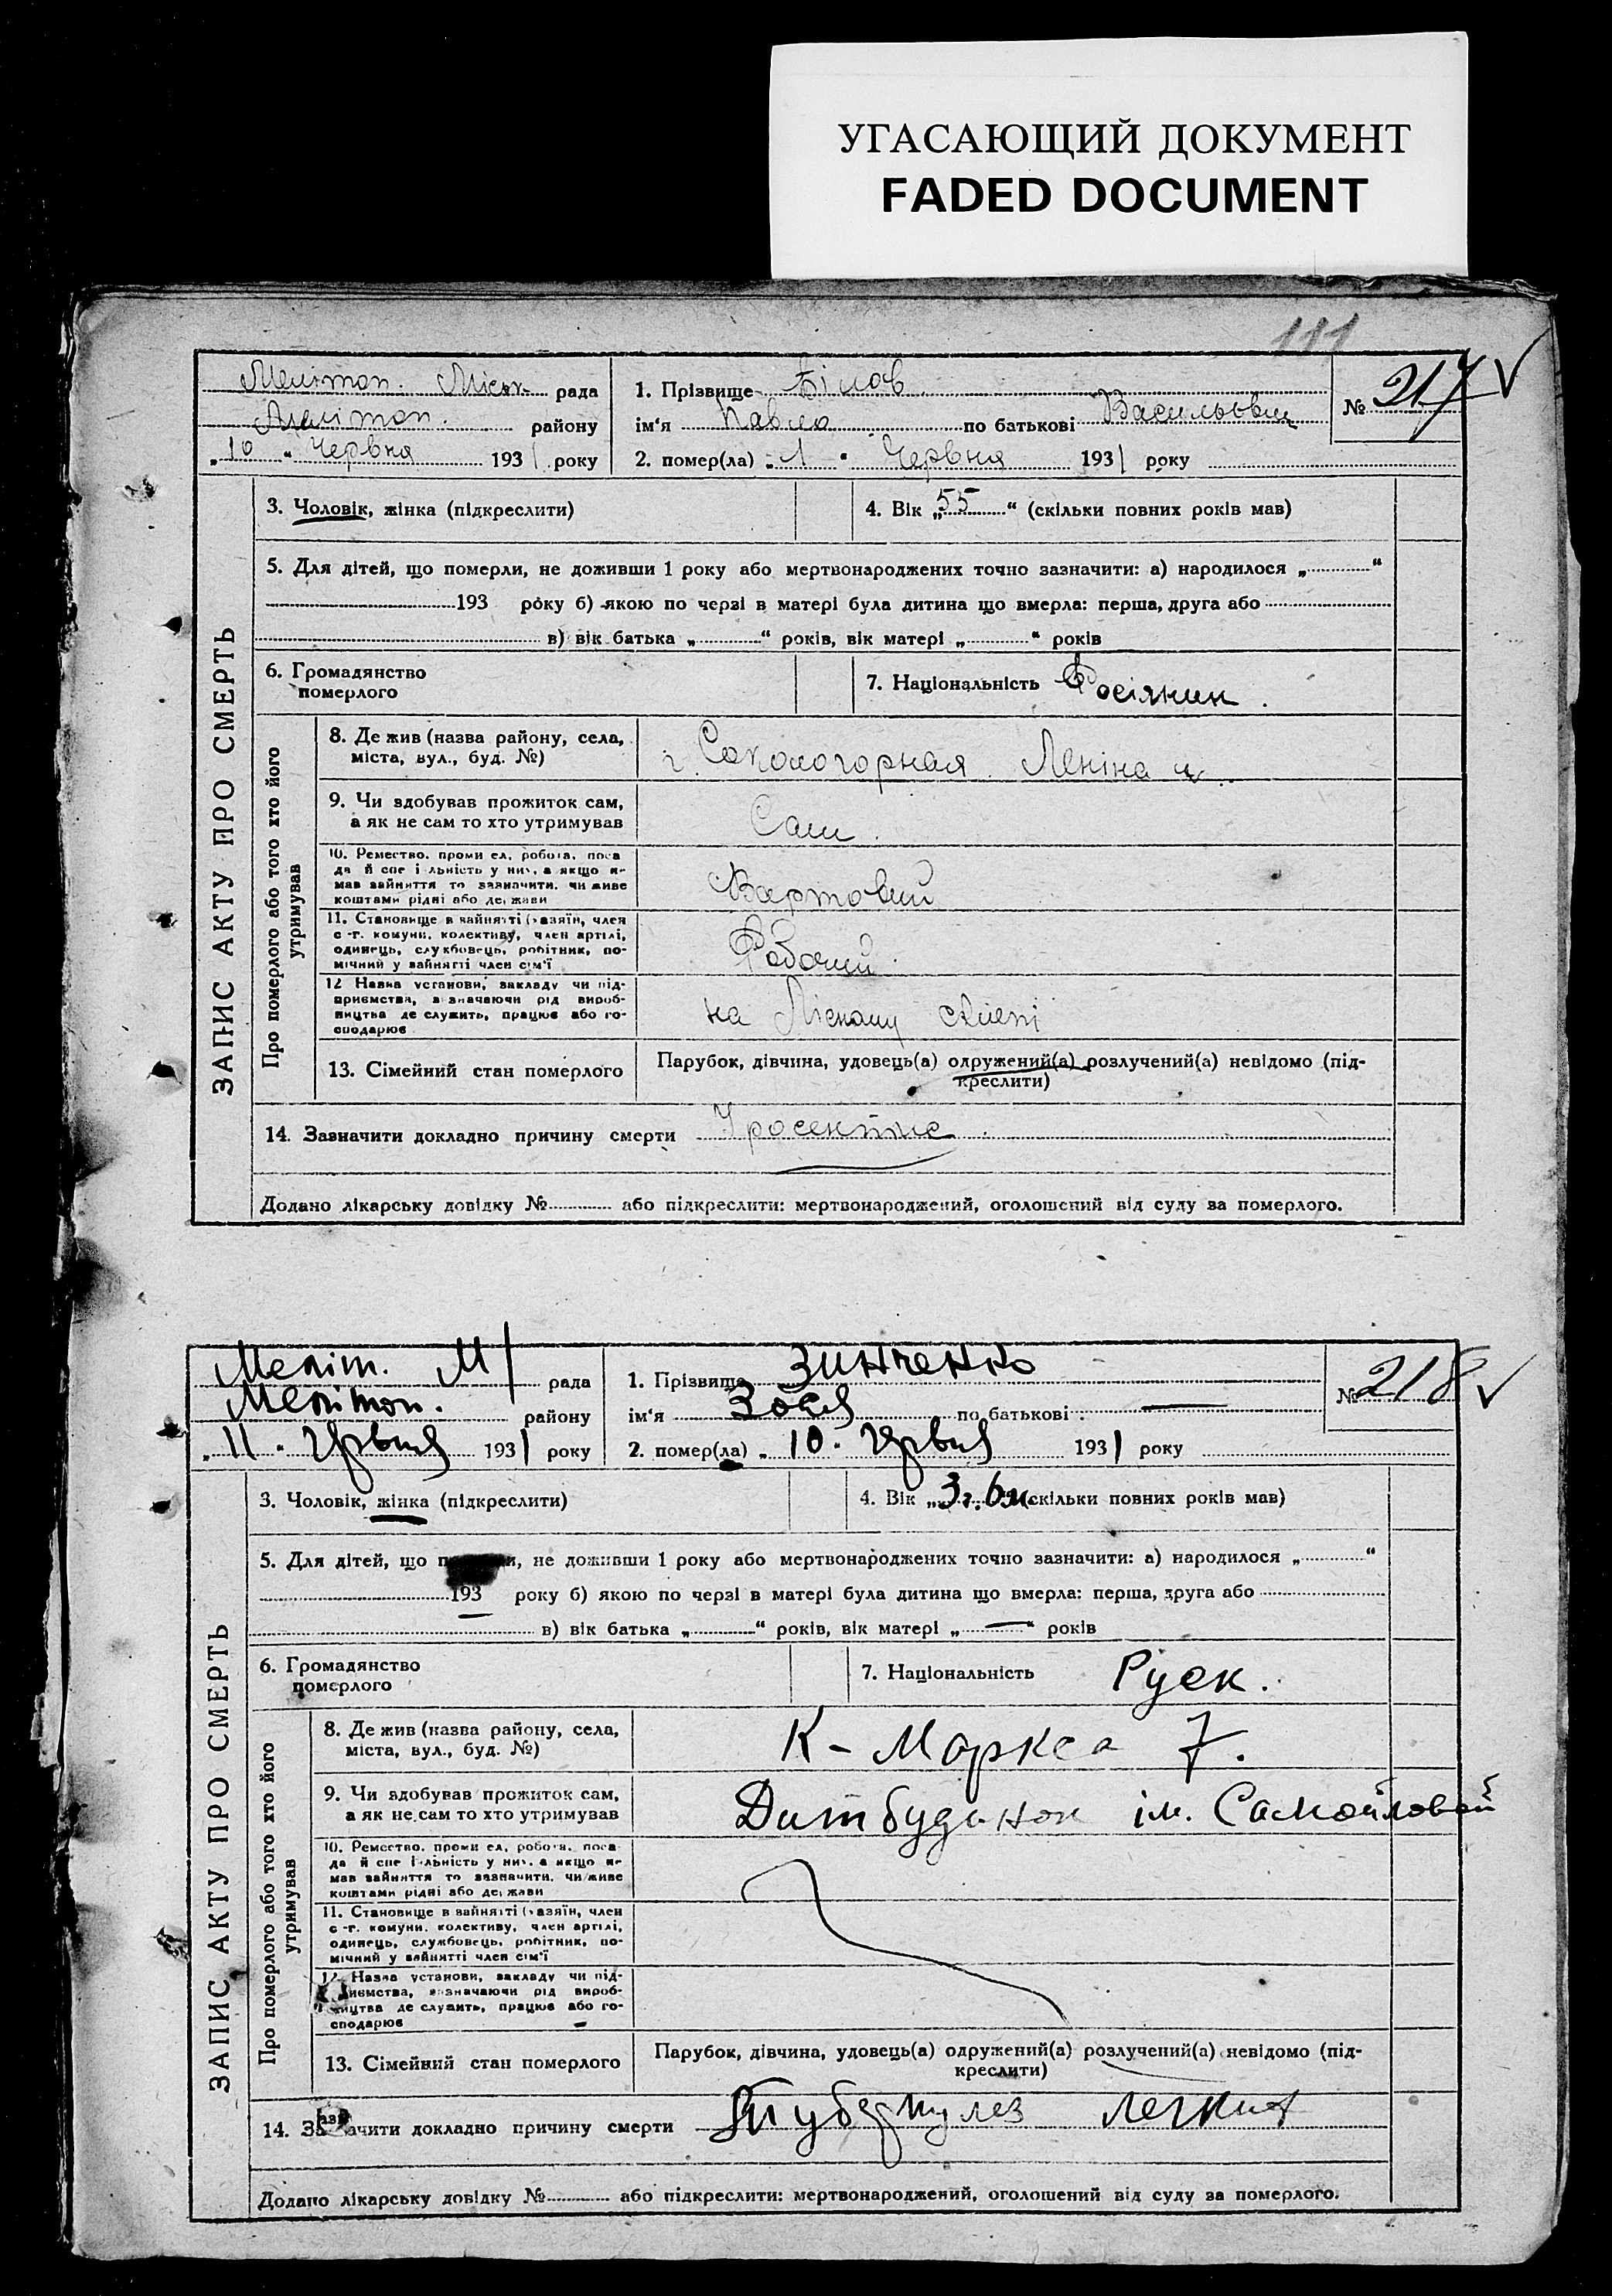 УГАСАЮЩИЙ ДОКУМЕНТ
FADED DOCUMENT
111
Меліпоп. Міськ. рада
Меліпоп. району
„10“ Червня 1931 року
1. Прізвище Білов
ім'я Павло по батькові Васильович
2. помер(ла) „1“ Червня 1931 року
№ 217
ЗАПИС АКТУ ПРО СМЕРТЬ
3. Чоловік, жінка (підкреслити)
4. Вік „55“ (скільки повних років мав)
5. Для дітей, що померли, не доживши 1 року або мертвонароджених точно зазначити: а) народилося „ “
193 року б) якою по черзі в матері була дитина що вмерла: перша, друга або
в) вік батька „ “ років, вік матері „ “ років
6. Громадянство
померлого
7. Національність Росіянин.
Про померлого або того хто його
утримував
8. Де жив (назва району, села,
міста, вул., буд. №)
г. Сокологорная Леніна
9. Чи здобував прожиток сам,
а як не сам то хто утримував
Сам.
10. Ремество, промисел, робота, поса
да й спеціальність у них, а якщо не
мав зайняття то зазначити, чи живе
коштами рідні або держави
Вартовий
11. Становище в зайнятті (хазяїн, член
с-г. комуни, колективу, член артілі,
одинець, службовець, робітник, по-
мічний у зайнятті член сім'ї
Робочий
12 Назва установи, закладу чи під-
приємства, зазначаючи рід вироб-
ництва де служить, працює або го-
сподарює
на Лісному
13. Сімейний стан померлого
Парубок, дівчина, удовець(а) одружений(а) розлучений(а) невідомо (під-
креслити)
14. Зазначити докладно причину смерти
Додано лікарську довідку № або підкреслити: мертвонароджений, оголошений від суду за померлого.
Меліт. М/ рада
Меліпоп. району
„11“ Червня 1931 року
1. Прізвище Зинченко
ім'я Зося по батькові —
2. помер(ла) „10“ Червня 1931 року
№ 218
ЗАПИС АКТУ ПРО СМЕРТЬ
3. Чоловік, жінка (підкреслити)
4. Вік „3 г. 6 м. скільки повних років мав)
5. Для дітей, що померли, не доживши 1 року або мертвонароджених точно зазначити: а) народилося „ “
193 року б) якою по черзі в матері була дитина що вмерла: перша, друга або
в) вік батька „ “ років, вік матері „—“ років
6. Громадянство
померлого
7. Національність Руск.
Про померлого або того хто його
утримував
8. Де жив (назва району, села,
міста, вул., буд. №)
К-Маркса 7.
9. Чи здобував прожиток сам,
а як не сам то хто утримував
Дитбудинок ім. Самойловой
10. Ремество, промисел, робота, поса
да й спеціальність у них, а якщо не
мав зайняття то зазначити, чи живе
коштами рідні або держави
11. Становище в зайнятті (хазяїн, член
с-г. комуни, колективу, член артілі,
одинець, службовець, робітник, по-
мічний у зайнятті член сім'ї
12. Назва установи, закладу чи під-
приємства, зазначаючи рід вироб-
ництва де служить, працює або го-
сподарює
13. Сімейний стан померлого
Парубок, дівчина, удовець(а) одружений(а) розлучений(а) невідомо (під-
креслити)
14. Зазначити докладно причину смерти Туберкулез легких
Додано лікарську довідку № або підкреслити: мертвонароджений, оголошений від суду за померлого.